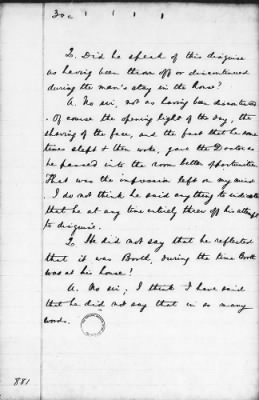 Q. Did he speak of this disguise
as having been thrown off or discontinued
during the man's stay in the house?
A. No sir, not as having been discontinued
. Of course the opening light of the day, the
shaving of the face, and the fact that he some
times slept & then woke, gave the Doctor as
he passed into the room better opportunities.
That was the impression left on my mind
. I do not think he said anything to indicate
that he at any time entirely threw off his attempt
to disguise.
Q. He did not say that he reflected
that it was Booth, during the time Booth
was at his house?
A. No sir; I think I have said
that he did not say that in so many
words.
881